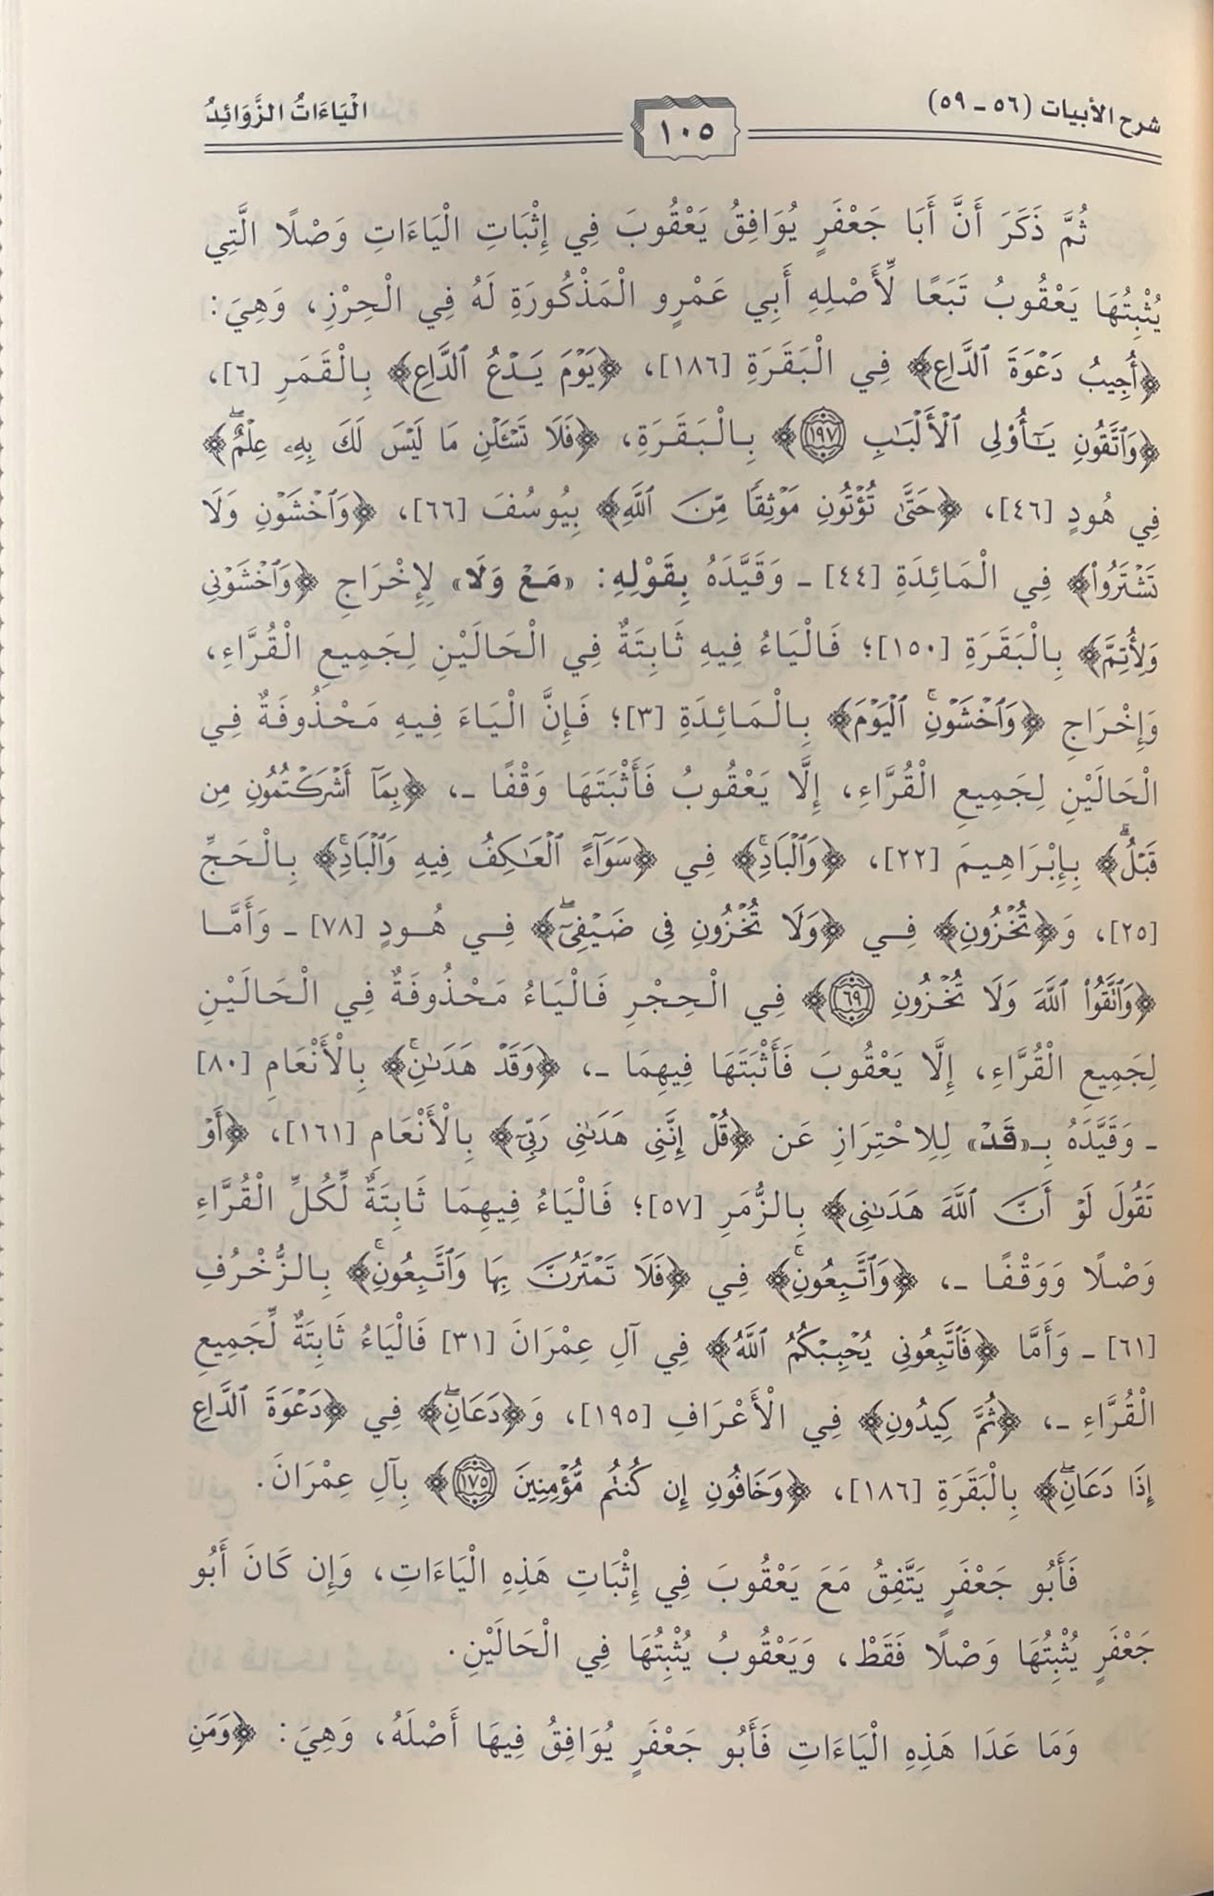 شرح الأبيات (٥٦ - ٥٩)
١٠٥
الْيَاءَاتُ الزَّوَائِدُ
ثُمَّ ذَكَرَ أَنَّ أَبَا جَعْفَرٍ يُوَافِقُ يَعْقُوبَ فِي إِثْبَاتِ الْيَاءَاتِ وَصْلًا الَّتِي
يُثْبِتُهَا يَعْقُوبُ تَبَعًا لِّأَصْلِهِ أَبِي عَمْرٍو الْمَذْكُورَةِ لَهُ فِي الْحِرْزِ، وَهِيَ:
﴿أُجِيبُ دَعْوَةَ ٱلدَّاعِ﴾ فِي الْبَقَرَةِ [١٨٦]، ﴿يَوْمَ يَدْعُ ٱلدَّاعِ﴾ بِالْقَمَرِ [٦]،
﴿وَٱتَّقُونِ يَـٰٓأُوْلِى ٱلْأَلْبَـٰبِ ١٩٧﴾ بِالْبَقَرَةِ، ﴿فَلَا تَسْـَٔلْنِ مَا لَيْسَ لَكَ بِهِۦ عِلْمٌۖ﴾
فِي هُودٍ [٤٦]، ﴿حَتَّىٰ تُؤْتُونِ مَوْثِقًا مِّنَ ٱللَّهِ﴾ بِيُوسُفَ [٦٦]، ﴿وَٱخْشَوْنِ وَلَا
تَشْتَرُوا۟﴾ فِي الْمَائِدَةِ [٤٤] - وَقَيَّدَهُ بِقَوْلِهِ: «مَعْ وَلَا» لِإِخْرَاجِ ﴿وَٱخْشَوْنِى
وَلِأُتِمَّ﴾ بِالْبَقَرَةِ [١٥٠]؛ فَالْيَاءُ فِيهِ ثَابِتَةٌ فِي الْحَالَيْنِ لِجَمِيعِ الْقُرَّاءِ،
وَإِخْرَاجِ ﴿وَٱخْشَوْنِۚ ٱلْيَوْمَ﴾ بِالْمَائِدَةِ [٣]؛ فَإِنَّ الْيَاءَ فِيهِ مَحْذُوفَةٌ فِي
الْحَالَيْنِ لِجَمِيعِ الْقُرَّاءِ، إِلَّا يَعْقُوبُ فَأَثْبَتَهَا وَقْفًا -، ﴿بِمَآ أَشْرَكْتُمُونِ مِن
قَبْلُۗ﴾ بِإِبْرَاهِيمَ [٢٢]، ﴿وَٱلْبَادِۚ﴾ فِي ﴿سَوَآءً ٱلْعَـٰكِفُ فِيهِ وَٱلْبَادِۚ﴾ بِالْحَجِّ
[٢٥]، وَ﴿تُخْزُونِ﴾ فِي ﴿وَلَا تُخْزُونِ فِى ضَيْفِىٓۖ﴾ فِي هُودٍ [٧٨] - وَأَمَّا
﴿وَٱتَّقُوا۟ ٱللَّهَ وَلَا تُخْزُونِ ٦٩﴾ فِي الْحِجْرِ فَالْيَاءُ مَحْذُوفَةٌ فِي الْحَالَيْنِ
لِجَمِيعِ الْقُرَّاءِ، إِلَّا يَعْقُوبَ فَأَثْبَتَهَا فِيهِمَا -، ﴿وَقَدْ هَدَىٰنِۚ﴾ بِالْأَنْعَامِ [٨٠]
- وَقَيَّدَهُ بِـ«قَدْ» لِلِاحْتِرَازِ عَن ﴿قُلْ إِنَّنِى هَدَىٰنِى رَبِّىٓ﴾ بِالْأَنْعَامِ [١٦١]، ﴿أَوْ
تَقُولَ لَوْ أَنَّ ٱللَّهَ هَدَىٰنِى﴾ بِالزُّمَرِ [٥٧]؛ فَالْيَاءُ فِيهِمَا ثَابِتَةٌ لِّكُلِّ الْقُرَّاءِ
وَصْلًا وَوَقْفًا -، ﴿وَٱتَّبِعُونِۚ﴾ فِي ﴿فَلَا تَمْتَرُنَّ بِهَا وَٱتَّبِعُونِۚ﴾ بِالزُّخْرُفِ
[٦١] - وَأَمَّا ﴿فَٱتَّبِعُونِى يُحْبِبْكُمُ ٱللَّهُ﴾ فِي آلِ عِمْرَانَ [٣١] فَالْيَاءُ ثَابِتَةٌ لِّجَمِيعِ
الْقُرَّاءِ -، ﴿ثُمَّ كِيدُونِ﴾ فِي الْأَعْرَافِ [١٩٥]، وَ﴿دَعَانِۖ﴾ فِي ﴿دَعْوَةَ ٱلدَّاعِ
إِذَا دَعَانِۖ﴾ بِالْبَقَرَةِ [١٨٦]، ﴿وَخَافُونِ إِن كُنتُم مُّؤْمِنِينَ ١٧٥﴾ بِآلِ عِمْرَانَ.
فَأَبُو جَعْفَرٍ يَتَّفِقُ مَعَ يَعْقُوبَ فِي إِثْبَاتِ هَذِهِ الْيَاءَاتِ، وَإِن كَانَ أَبُو
جَعْفَرٍ يُثْبِتُهَا وَصْلًا فَقَطْ، وَيَعْقُوبُ يُثْبِتُهَا فِي الْحَالَيْنِ.
وَمَا عَدَا هَذِهِ الْيَاءَاتِ فَأَبُو جَعْفَرٍ يُوَافِقُ فِيهَا أَصْلَهُ، وَهِيَ: ﴿وَمَنِ